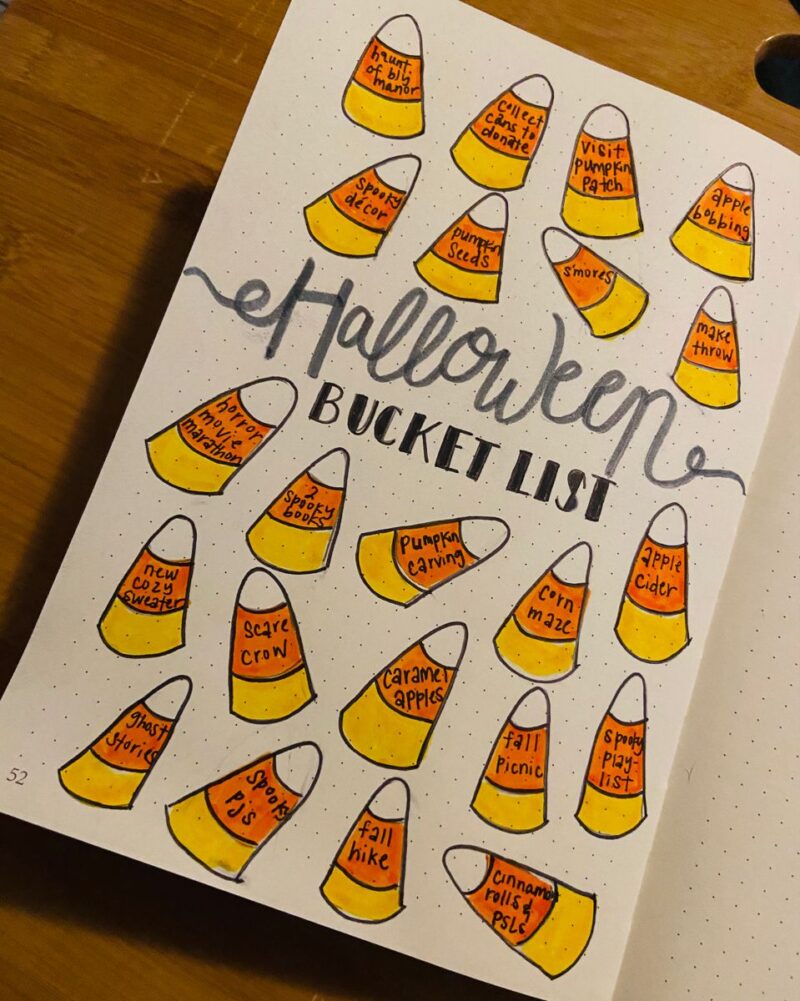 haunt
of bly
manor
collect
cans to
donate
visit
pumpkin
patch
apple
bobbing
spooky
décor
pumpkin
seeds
s'mores
make
throw
Halloween
BUCKET LIST
horror
movie
marathon
2
spooky
books
pumpkin
carving
apple
cider
new
cozy
sweater
scare
crow
corn
maze
caramel
apples
ghost
stories
fall
picnic
spooky
play-
list
spooky
pjs
fall
hike
cinnamon
rolls &
PSLs
52